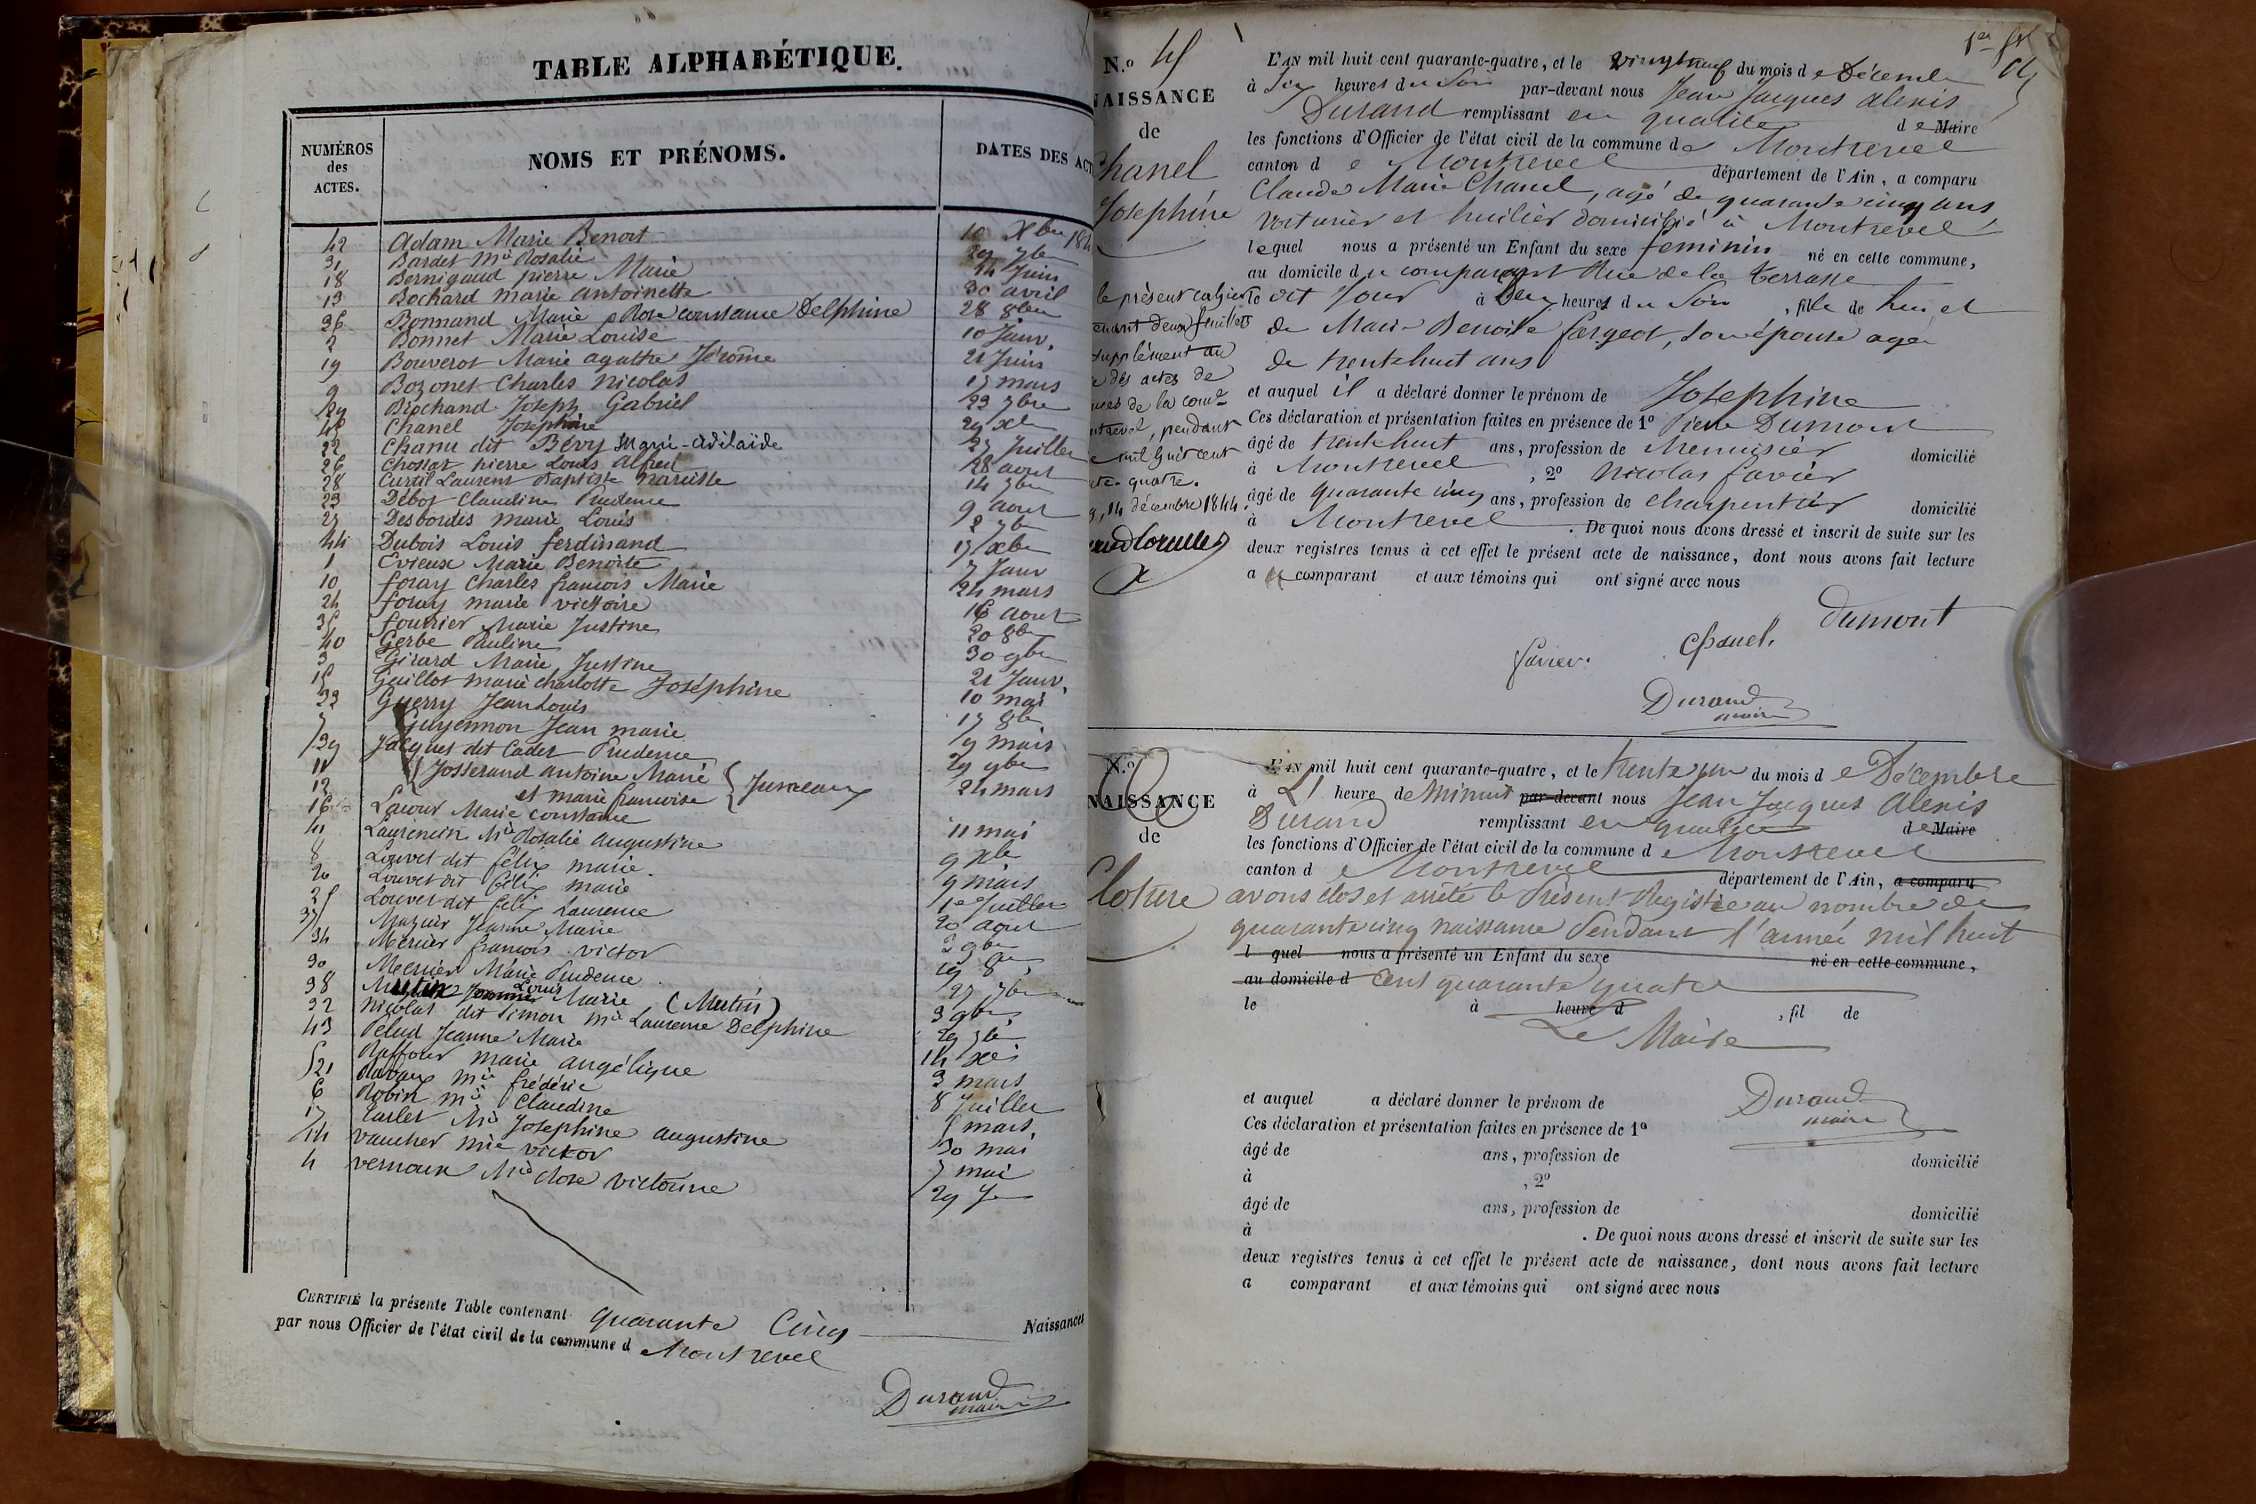 TABLE ALPHABÉTIQUE.
NUMÉROS des ACTES.
NOMS ET PRÉNOMS.
DATES DES ACT
42 Adam Marie Benoit 10 Xbre 184
31 Bardet Mie Rosalie 29 7bre
18 Bernigaud pierre Marie 14 Juin
13 Bochard marie antoinette 30 avril
36 Bonnand Marie Rose constance Delphine 28 8bre
2 Bonnet Marie Louise 10 Janv.
19 Bouverot Marie agathe Jérome 21 Juin
9 Bozonet Charles Nicolas 17 mars
29 Brochand Joseph Gabriel 23 7bre
45 Chanel Josephine 29 Xbre
22 Chanu dit Bévy Marie-Adélaïde 27 Juillet
26 Chossat pierre Louis alfred 28 aout
28 Curtil Laurent Baptiste Narcisse 14 7bre
23 Debost Claudine Prudence 9 aout
27 Desbordes marie Louis 2 7bre
44 Dubois Louis ferdinand 17 Xbre
1 Evieux Marie Benoite 7 Janv
10 foray Charles francois Marie 24 mars
24 foray marie victoire 16 aout
35 fourrier Marie Justine 20 8bre
40 Gerbe Pauline 30 9bre
3 Girard Marie Justine 21 Janv.
15 Guillot marie charlotte Joséphine 10 mai
33 Guerry Jean Louis 17 8bre
7 Guyennon Jean marie 9 mars
39 Jacques dit Cadet Prudence 29 9bre
11 Josserand antoine Marie
12 et marie francoise Jumeaux 24 mars
16 Lacour Marie constance 11 mai
41 Laurencin Mie Rosalie augustine 9 Xbre
8 Louvet dit félix marie. 9 mars
20 Louvet dit félix marie 1er Juillet
25 Louvet dit félix Laurence 20 aout
37 Mazuir Jeanne Marie 2 9bre
34 Mercier francois victor 19 8bre
30 Mercier Marie Prudence 27 7bre
38 Louis Marie (Mutin) 3 9bre
32 Nicolas dit Simon Mie Laurence Delphine 29 7bre
43 Pelud Jeanne Marie 14 Xbre
5 Raffour marie angélique 3 mars
21 Ravaux Mie frédéric 8 Juillet
6 Robin Mie Claudine 5 mars
17 Tarlet Mie Josephine augustine 30 mai
14 vaucher mie victor 7 mai
4 vernoux Mie Rose victorine 29 Jer
CERTIFIÉ la présente Table contenant quarante Cinq Naissances
par nous Officier de l'état civil de la commune d e Montrevel
Durand
maire
1er
N.º 45
NAISSANCE
de
Chanel
Josephine
le présent cahier
contenant deux feuillets
supplément au
des actes de
de la comne
pendant
mil huit cent
quatre.
14 décembre 1844.
L'AN mil huit cent quarante-quatre, et le vingt neuf du mois d e Décembre
à Six heures du Soir par-devant nous Jean Jacques alexis
Durand remplissant en qualité d e Maire
les fonctions d'Officier de l'état civil de la commune de Montrevel
canton d e Montrevel département de l'Ain, a comparu
Claude Marie Chanel, agé de quarante cinq ans
voiturier et huilier domicilié à Montrevel
lequel nous a présenté un Enfant du sexe feminin né en cette commune,
au domicile du comparant Rue de la terrasse
le dit Jour à Deux heures du Soir, fille de lui et
de Marie Benoite fargeot, son épouse agée
de trente huit ans
et auquel il a déclaré donner le prénom de Josephine
Ces déclaration et présentation faites en présence de 1º Pierre Dumont
âgé de trente huit ans, profession de Menuisier domicilié
à Montrevel, 2º Nicolas favier
âgé de quarante cinq ans, profession de charpentier domicilié
à Montrevel. De quoi nous avons dressé et inscrit de suite sur les
deux registres tenus à cet effet le présent acte de naissance, dont nous avons fait lecture
a u comparant et aux témoins qui ont signé avec nous
Dumont
Chanel.
favier.
Durand
maire
N.º
NAISSANCE
de
Cloture
L'AN mil huit cent quarante-quatre, et le trente un du mois d e Décembre
à L' heure de minuit par-devant nous Jean Jacques Alexis
Durand remplissant en qualité d e Maire
les fonctions d'Officier de l'état civil de la commune d e Montrevel
canton d e Montrevel département de l'Ain, a comparu
avons clos et arrêté le Présent Registre au nombre de
quarante cinq naissance Pendant l'année mil huit
l quel nous a présenté un Enfant du sexe né en cette commune,
au domicile d cent quarante quatre
le à heure d, fil de
Le Maire
et auquel a déclaré donner le prénom de
Durand
maire
Ces déclaration et présentation faites en présence de 1º
âgé de ans, profession de domicilié
à , 2º
âgé de ans, profession de domicilié
à . De quoi nous avons dressé et inscrit de suite sur les
deux registres tenus à cet effet le présent acte de naissance, dont nous avons fait lecture
a comparant et aux témoins qui ont signé avec nous